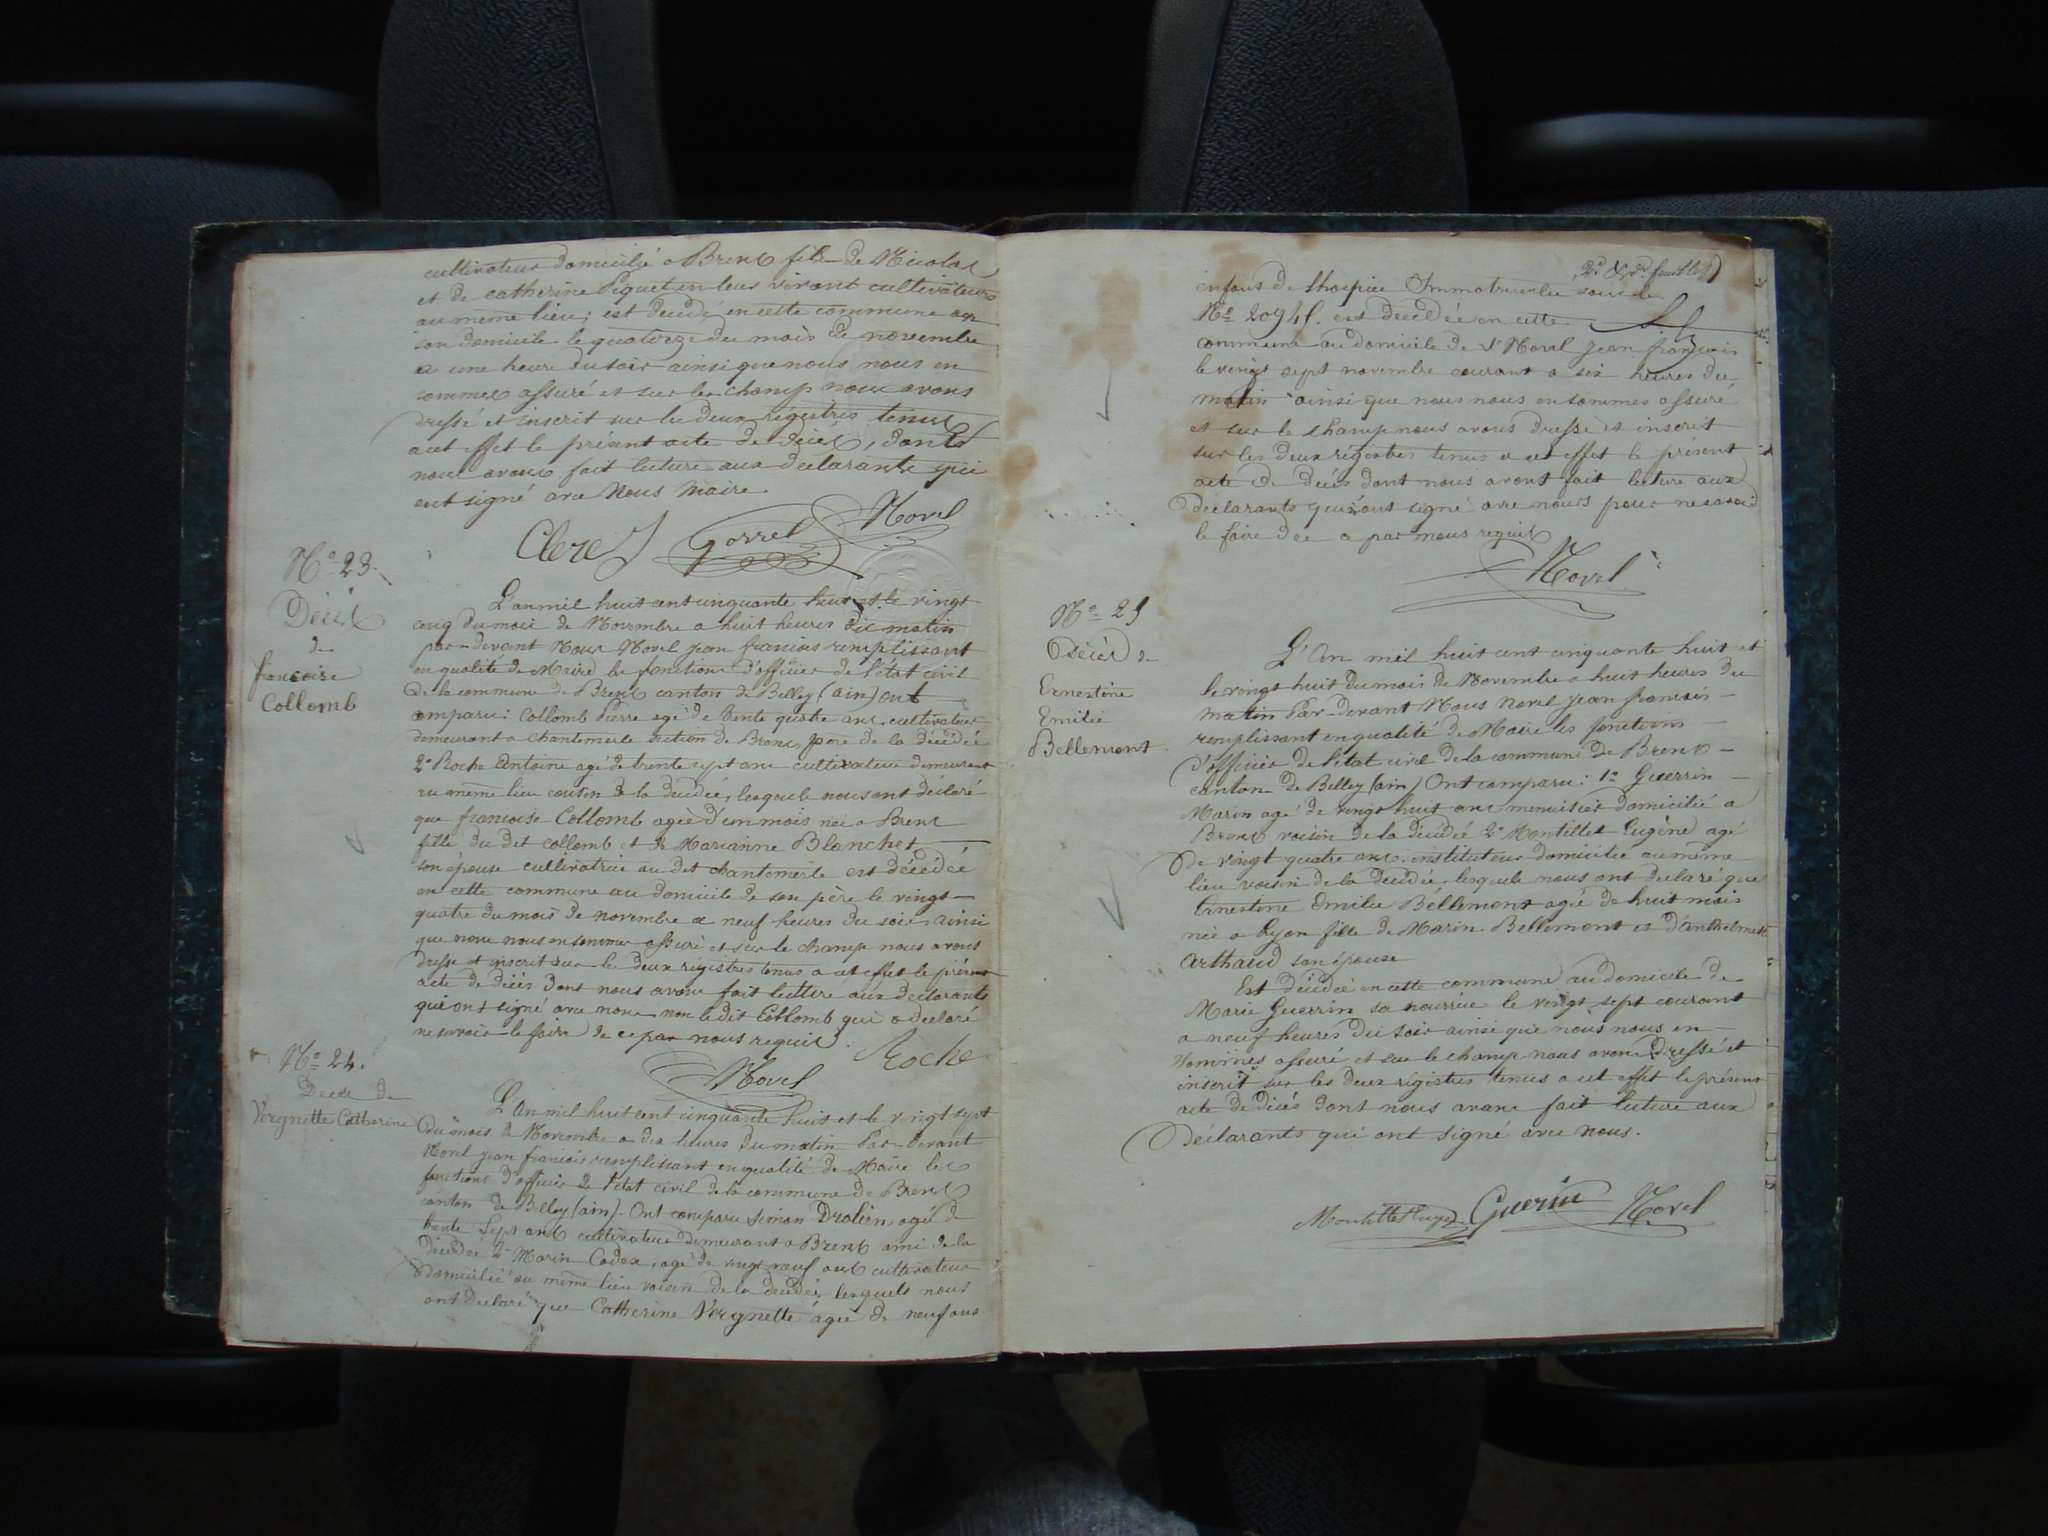 cultivateur domicilié a Brens fils de Nicolas
et de Catherine Piquet en leur vivant cultivateurs
au même lieu, est décédé en cette commune en
son domicile le quatorze du mois de novembre
a une heure du soir ainsi que nous nous en
sommes assuré et sur le champ nous avons
dressé et inscrit sur les deux régistres tenus
a cet effet le présent acte de décès, dont
nous avons fait lecture aux déclarants qui
ont signé avec Nous Maire
Clerc Gorrel Novel
No 23.
Décès
de
françoise
Collomb
L'an mil huit cent cinquante huit et le vingt
cinq du mois de Novembre a huit heures du matin
par-devant Nous Novel jean francois remplissant
en qualité de Maire les fonctions d'officier de l'état civil
de la commune de Brens canton de Belley (ain) ont
comparu: Collomb Pierre agé de trente quatre ans, cultivateur
demeurant a Chantemerle section de Brens, père de la décédée
2o Roche Antoine agé de trente sept ans cultivateur demeurant
au même lieu cousin de la décédée, lesquels nous ont déclaré
que françoise Collomb agée d'un mois née a Brens
fille du dit Collomb et de Marianne Blanchet
son épouse cultivatrice au dit chantemerle est décédée
en cette commune au domicile de son père le vingt
quatre du mois de novembre a neuf heures du soir, ainsi
que nous nous en sommes assuré et sur le champ nous avons
dressé et inscrit sur les deux régistres tenus a cet effet le présent
acte de décès dont nous avons fait lecture aux declarants
qui ont signé avec nous non le dit Collomb qui a declaré
ne savoir le faire de ce par nous requis.
Novel Roche
No 24.
Décès de
Vergnette Catherine
L'an mil huit cent cinquante huit et le vingt sept
du mois de Novembre a dix heures du matin Par-devant
Novel jean francois remplissant en qualité de Maire les
fonctions d'officier de l'état civil de la commune de Brens
canton de Belley (ain). Ont comparu Simon Drolien, agé de
trente sept ans cultivateur demeurant a Brens ami de la
décédée 2o Marin Cadox, agé de vingt neuf ans cultivateur
domicilié au même lieu voisin de la décédée, lesquels nous
ont declaré que Catherine Vergnette âgée de neuf ans
2e & dr. feuillet
enfant de l'hospice Immatriculée sous le
No 20945. est décédée en cette
commune au domicile de Sr Noral jean françois
le vingt sept novembre courant a six heures du
matin ainsi que nous nous en sommes assuré
et sur le champ nous avons dressé et inscrit
sur les deux régistres tenus a cet effet le présent
acte de décès dont nous avont fait lecture aux
déclarants qui ont signé avec nous pour ne savoir
le faire de ce a par nous requis
Novel
No 25
Décès de
Ernestine
Emilie
Bellemont
L'An mil huit cent cinquante huit et
le vingt huit du mois de Novembre a huit heures du
matin Par-devant Nous Novel jean françois
remplissant en qualité de Maire les fonctions
d'officier de l'état civil de la commune de Brens
canton de Belley (ain) Ont comparu: 1o Guerrin
Marin agé de vingt huit ans menuisier domicilié a
Brens voisin de la décédée 2o Montillet Eugène agé
de vingt quatre ans, instituteur domicilié au même
lieu voisin de la décédée, lesquels nous ont declaré que
Ernestine Emilie Bellemont agée de huit mois
née a Lyon fille de Marin Bellemont et d'Anthelmette
Arthaud son épouse
Est décédée en cette commune au domicile de
Marie Guerrin sa nourrice le vingt sept courant
a neuf heures du soir ainsi que nous nous en
sommes assuré et sur le champ nous avons dressé et
inscrit sur les deux régistres tenus a cet effet le présent
acte de décés dont nous avons fait lecture aux
Déclarants qui ont signé avec nous.
Montillet Guerin Novel